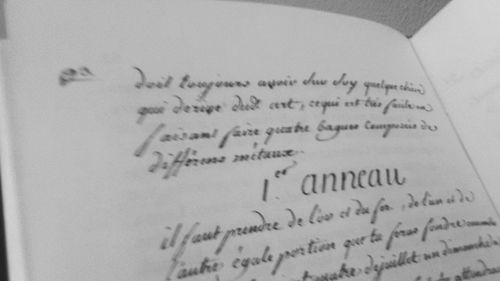 doit toujours avoir sur soy quelque chose
qui derive dudt art, ce qui est très facile en
faisant faire quatre bagues composées de
differens métaux.
1.er anneau
il faut prendre de l'or et du fer, de l'un et de
l'autre égale portion que tu feras fondre
de juillet un dimanche